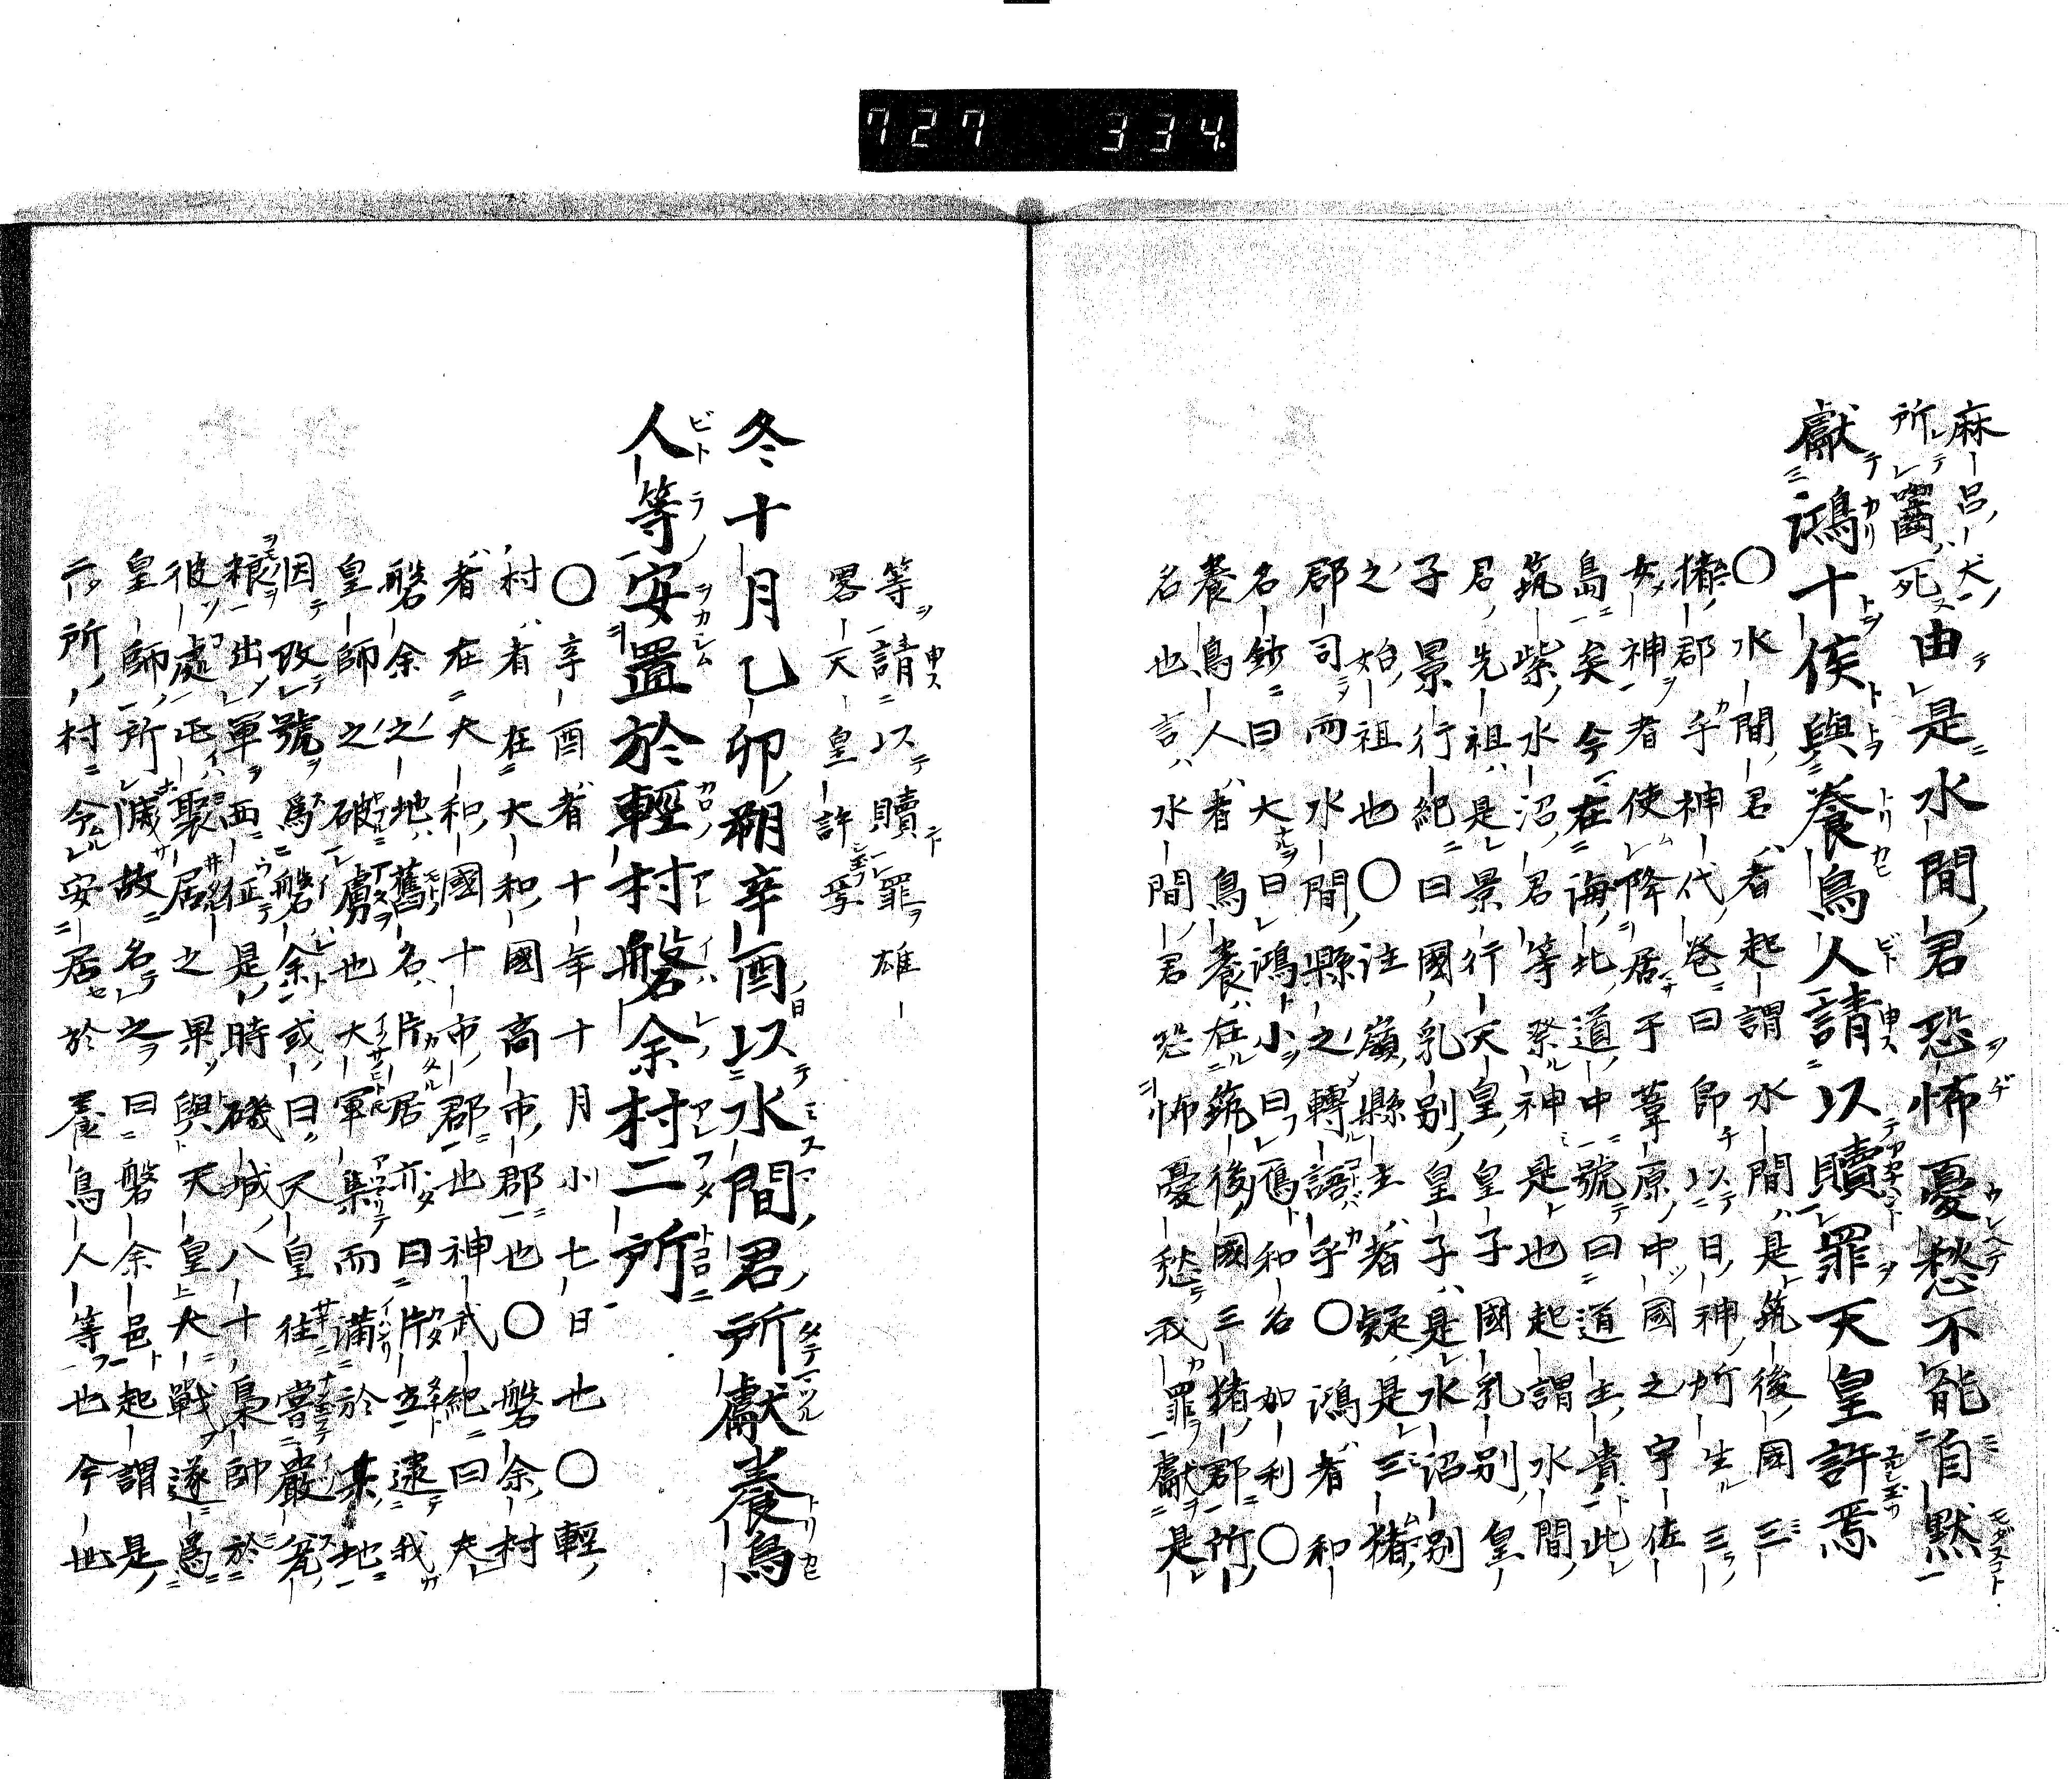 727 334
麻呂犬
所囓死由是水間君恐怖憂愁不能自黙
獻鴻十隻與養鳥人請以贖罪天皇許焉
〇水間君者起謂水間是筑後國三
猪郡乎神代巻曰即以日神所生三
女神者使降居于葦原中國之宇佐
島矣今在海北道中號曰道主貴此
筑紫水沼君等祭神是也起謂水間
君先祖是景行天皇皇子國乳別皇
子景行紀曰國乳別皇子是水沼別
之始祖也〇注嶺縣主者疑是三猪
郡司而水間縣之轉語乎〇鴻者和
名鈔曰大曰鴻小曰鴈和名加利〇
養鳥人者鳥養在筑後國三猪郡所
名也言水間君恐怖憂愁我罪獻是
等請以贖罪雄
畧天皇許乎
冬十月乙卯朔辛酉以水間君所獻養鳥
人等安置於輕村磐余村二所
〇辛酉者十年十月小七日也〇輕
村者在大和國高市郡也〇磐余村
者在大和國十市郡也神武紀曰夫
磐余之地舊名片居亦曰片立逮我
皇師之破虜也大軍集而滿於其地
因改號爲磐余或曰天皇往嘗嚴瓮
粮出軍西征是時磯城八十梟帥於
彼處屯聚居之果與天皇大戰遂爲
皇師所滅故名之曰磐余邑起謂是
二所村令安居於養鳥人等也今也